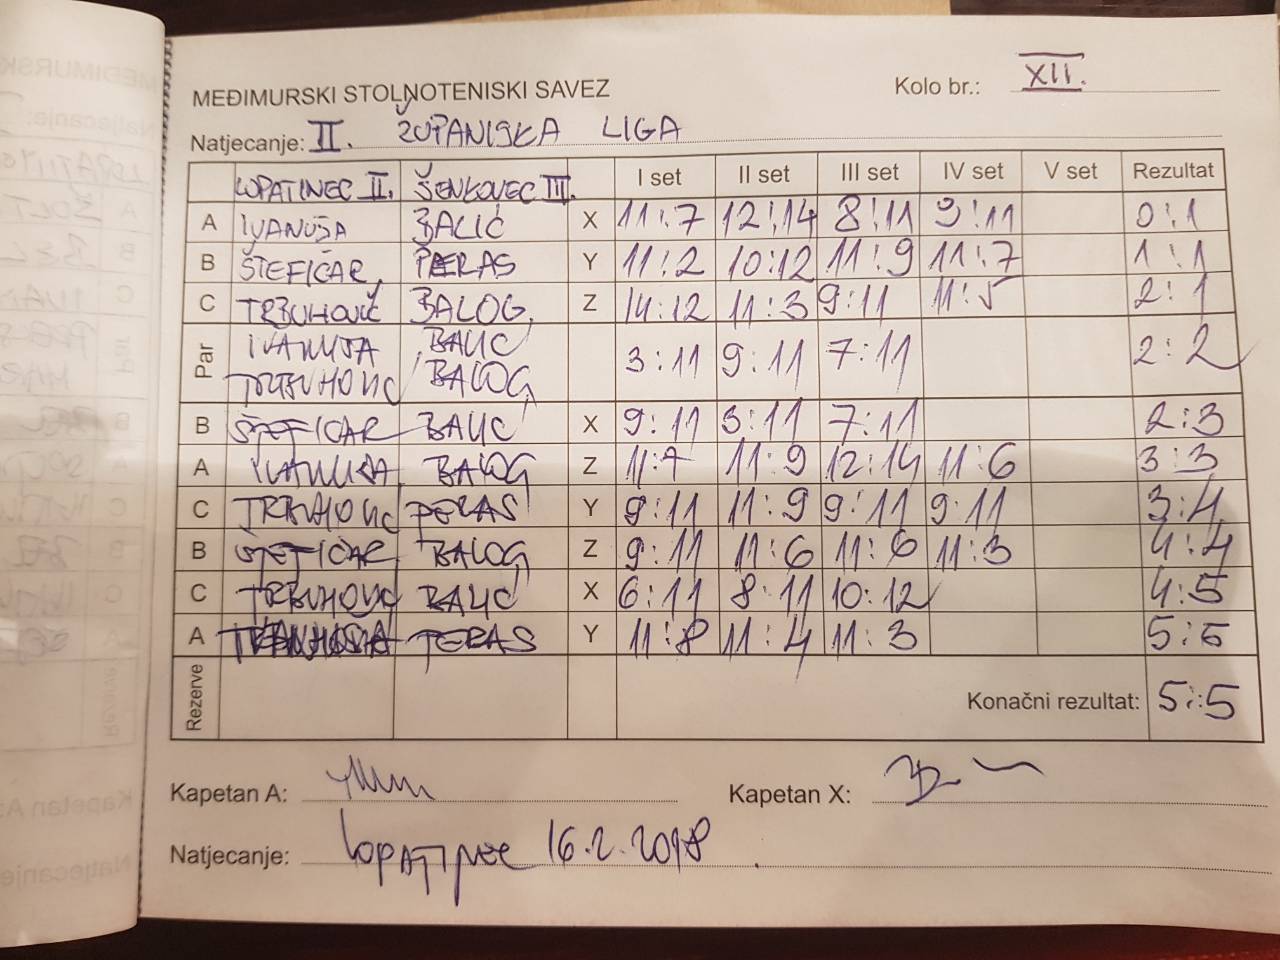 MEĐIMURSKI STOLNOTENISKI SAVEZ
Kolo br.: XII.
Natjecanje: II. ŽUPANIJSKA LIGA
LOPATINEC II. ŠENKOVEC III. I set II set III set IV set V set Rezultat
A IVANUŠA BALIĆ X 11:7 12:14 8:11 9:11 0:1
B ŠTEFIČAR PERAS Y 11:2 10:12 11:9 11:7 1:1
C TRBUHOVIĆ BALOG Z 14:12 11:3 9:11 11:5 2:1
Par IVANUŠA BALIĆ 3:11 9:11 7:11 2:2
TRBUHOVIĆ BALOG
B ŠTEFIČAR BALIĆ X 9:11 3:11 7:11 2:3
A IVANUŠA BALOG Z 11:7 11:9 12:14 11:6 3:3
C TRBUHOVIĆ PERAS Y 9:11 11:9 9:11 9:11 3:4
B ŠTEFIČAR BALOG Z 9:11 11:6 11:6 11:3 4:4
C TRBUHOVIĆ BALIĆ X 6:11 8:11 10:12 4:5
A PERAS Y 11:8 11:4 11:3 5:5
Rezerve Konačni rezultat: 5:5
Kapetan A: Kapetan X:
Natjecanje: LOPATINEC 16.2.2018